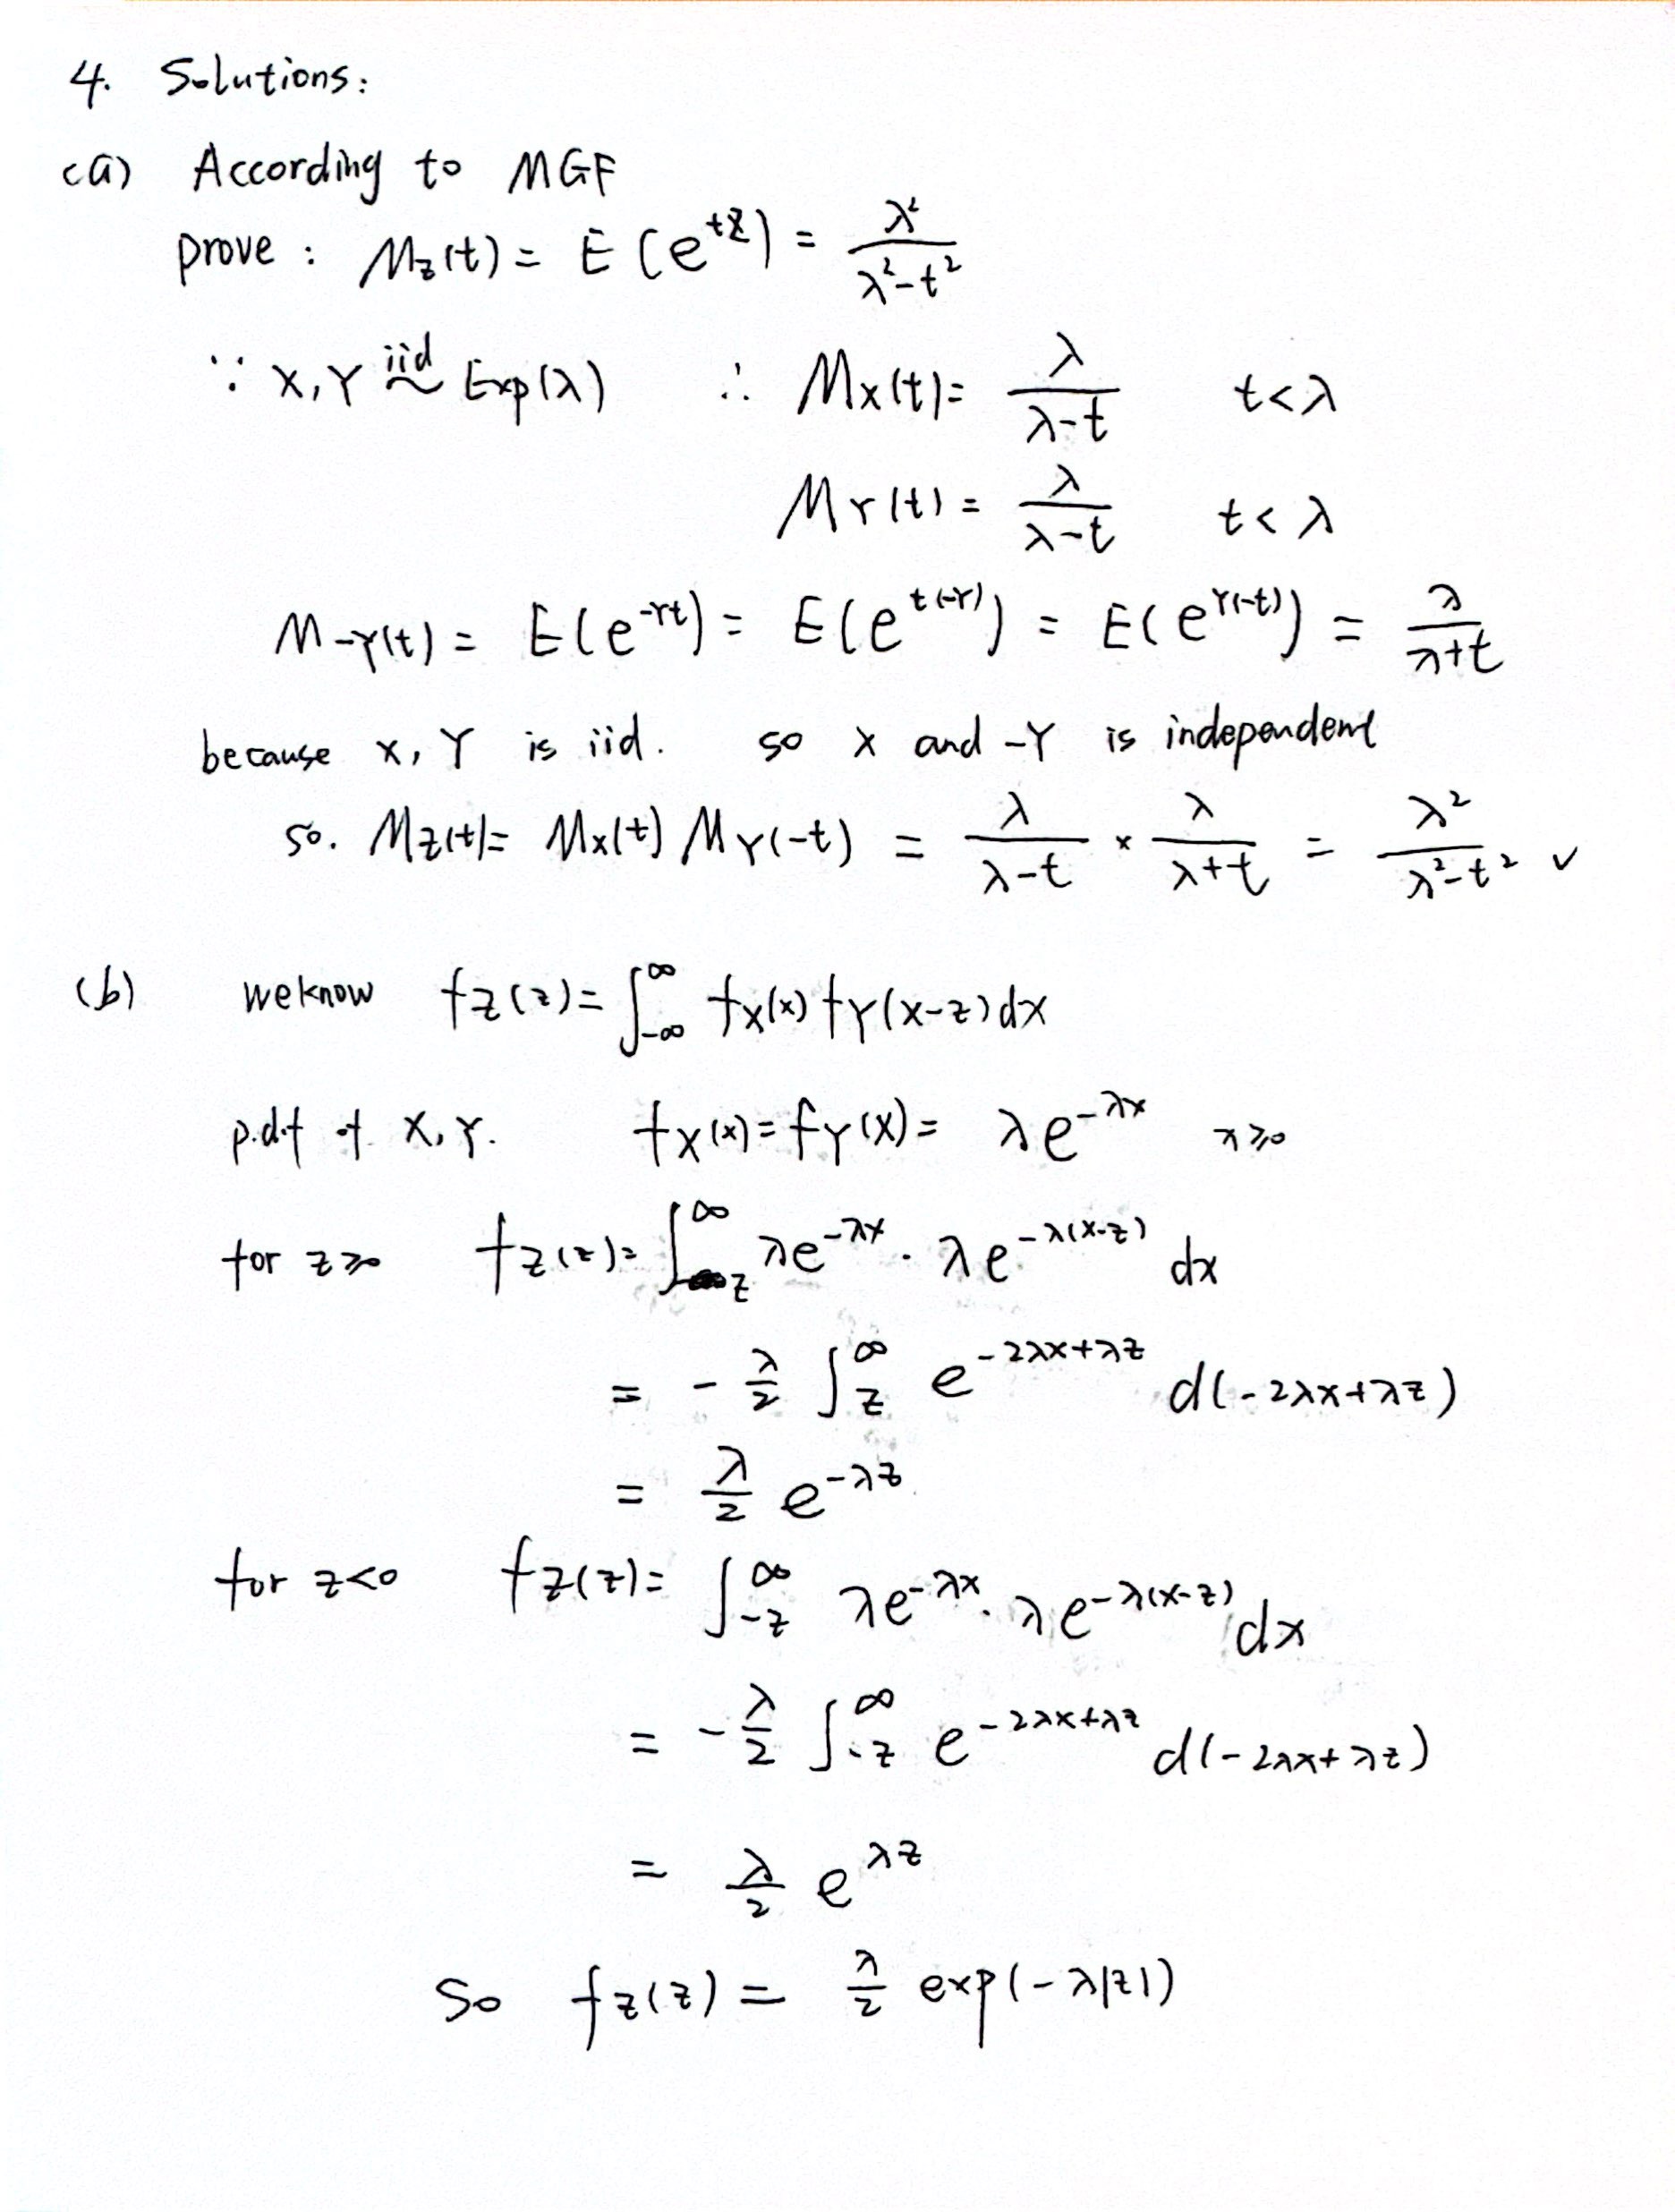 4. Solutions:
(a) According to MGF
prove : M_Z(t) = E(e^{tZ}) = λ²/(λ²-t²)
∵ X,Y iid~ Exp(λ) ∴ M_X(t)= λ/(λ-t) t<λ
M_Y(t) = λ/(λ-t) t<λ
M_{-Y}(t) = E(e^{-Yt}) = E(e^{t(-Y)}) = E(e^{Y(-t)}) = λ/(λ+t)
because X, Y is iid. so X and -Y is independent
so. M_Z(t)= M_X(t) M_Y(-t) = λ/(λ-t) × λ/(λ+t) = λ²/(λ²-t²) ✓
(b) we know f_Z(z)= ∫_{-∞}^{∞} f_X(x) f_Y(x-z) dx
p.d.f of X, Y. f_X(x) = f_Y(x) = λe^{-λx} x≥0
for z≥0 f_Z(z)= ∫_{z}^{∞} λe^{-λx} · λe^{-λ(x-z)} dx
= - λ/2 ∫_{z}^{∞} e^{-2λx+λz} d(-2λx+λz)
= λ/2 e^{-λz}
for z<0 f_Z(z)= ∫_{-z}^{∞} λe^{-λx} · λe^{-λ(x-z)} dx
= - λ/2 ∫_{-z}^{∞} e^{-2λx+λz} d(-2λx+λz)
= λ/2 e^{λz}
So f_Z(z) = λ/2 exp(-λ|z|)